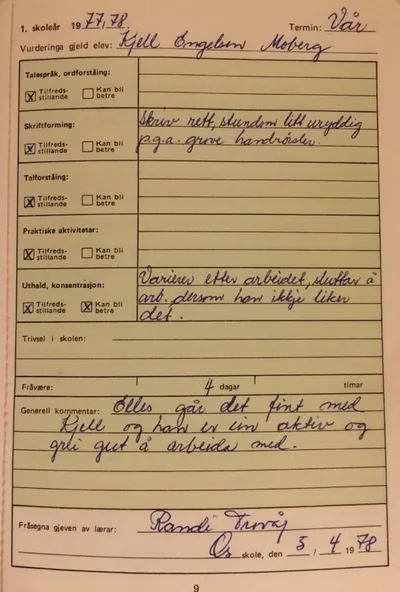 1. skoleår 1977,78. Termin: Vår
Vurderinga gjeld elev: Kjell Engelsen Moberg
Talespråk, ordforståing:
X Tilfreds-stillande Kan bli betre
Skriftforming:
Skriv rett, stundom litt uryddig
X Tilfreds-stillande Kan bli betre
p.g.a. grove handrørsler.
Talforståing:
X Tilfreds-stillande Kan bli betre
Praktiske aktivitetar:
X Tilfreds-stillande Kan bli betre
Uthald, konsentrasjon:
Varierer etter arbeidet, sluttar å
arb. dersom han ikkje liker
X Tilfreds-stillande X Kan bli betre
det.
Trivsel i skolen:
Fråvære: 4 dagar timar
Generell kommentar: Elles går det fint med
Kjell og han er ein aktiv og
grei gut å arbeida med.
Fråsegna gjeven av lærar: Randi
Os skole, den 5 / 4 1978
9